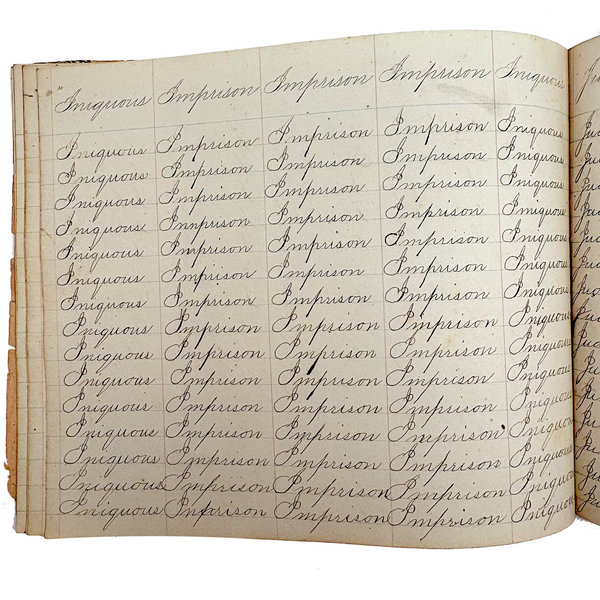 Iniquous Imprison Imprison Imprison Iniquous
Iniquous Imprison Imprison Imprison Iniquous
Iniquous Imprison Imprison Imprison Iniquous
Iniquous Imprison Imprison Imprison Iniquous
Iniquous Imprison Imprison Imprison Iniquous
Iniquous Imprison Imprison Imprison Iniquous
Iniquous Imprison Imprison Imprison Iniquous
Iniquous Imprison Imprison Imprison Iniquous
Iniquous Imprison Imprison Imprison Iniquous
Iniquous Imprison Imprison Imprison Iniquous
Iniquous Imprison Imprison Imprison Iniquous
Iniquous Imprison Imprison Imprison Iniquous
Iniquous Imprison Imprison Imprison Iniquous
Iniquous Imprison Imprison Imprison Iniquous
Iniquous Imprison Imprison Imprison Iniquous
Iniquous Imprison Imprison Imprison Iniquous